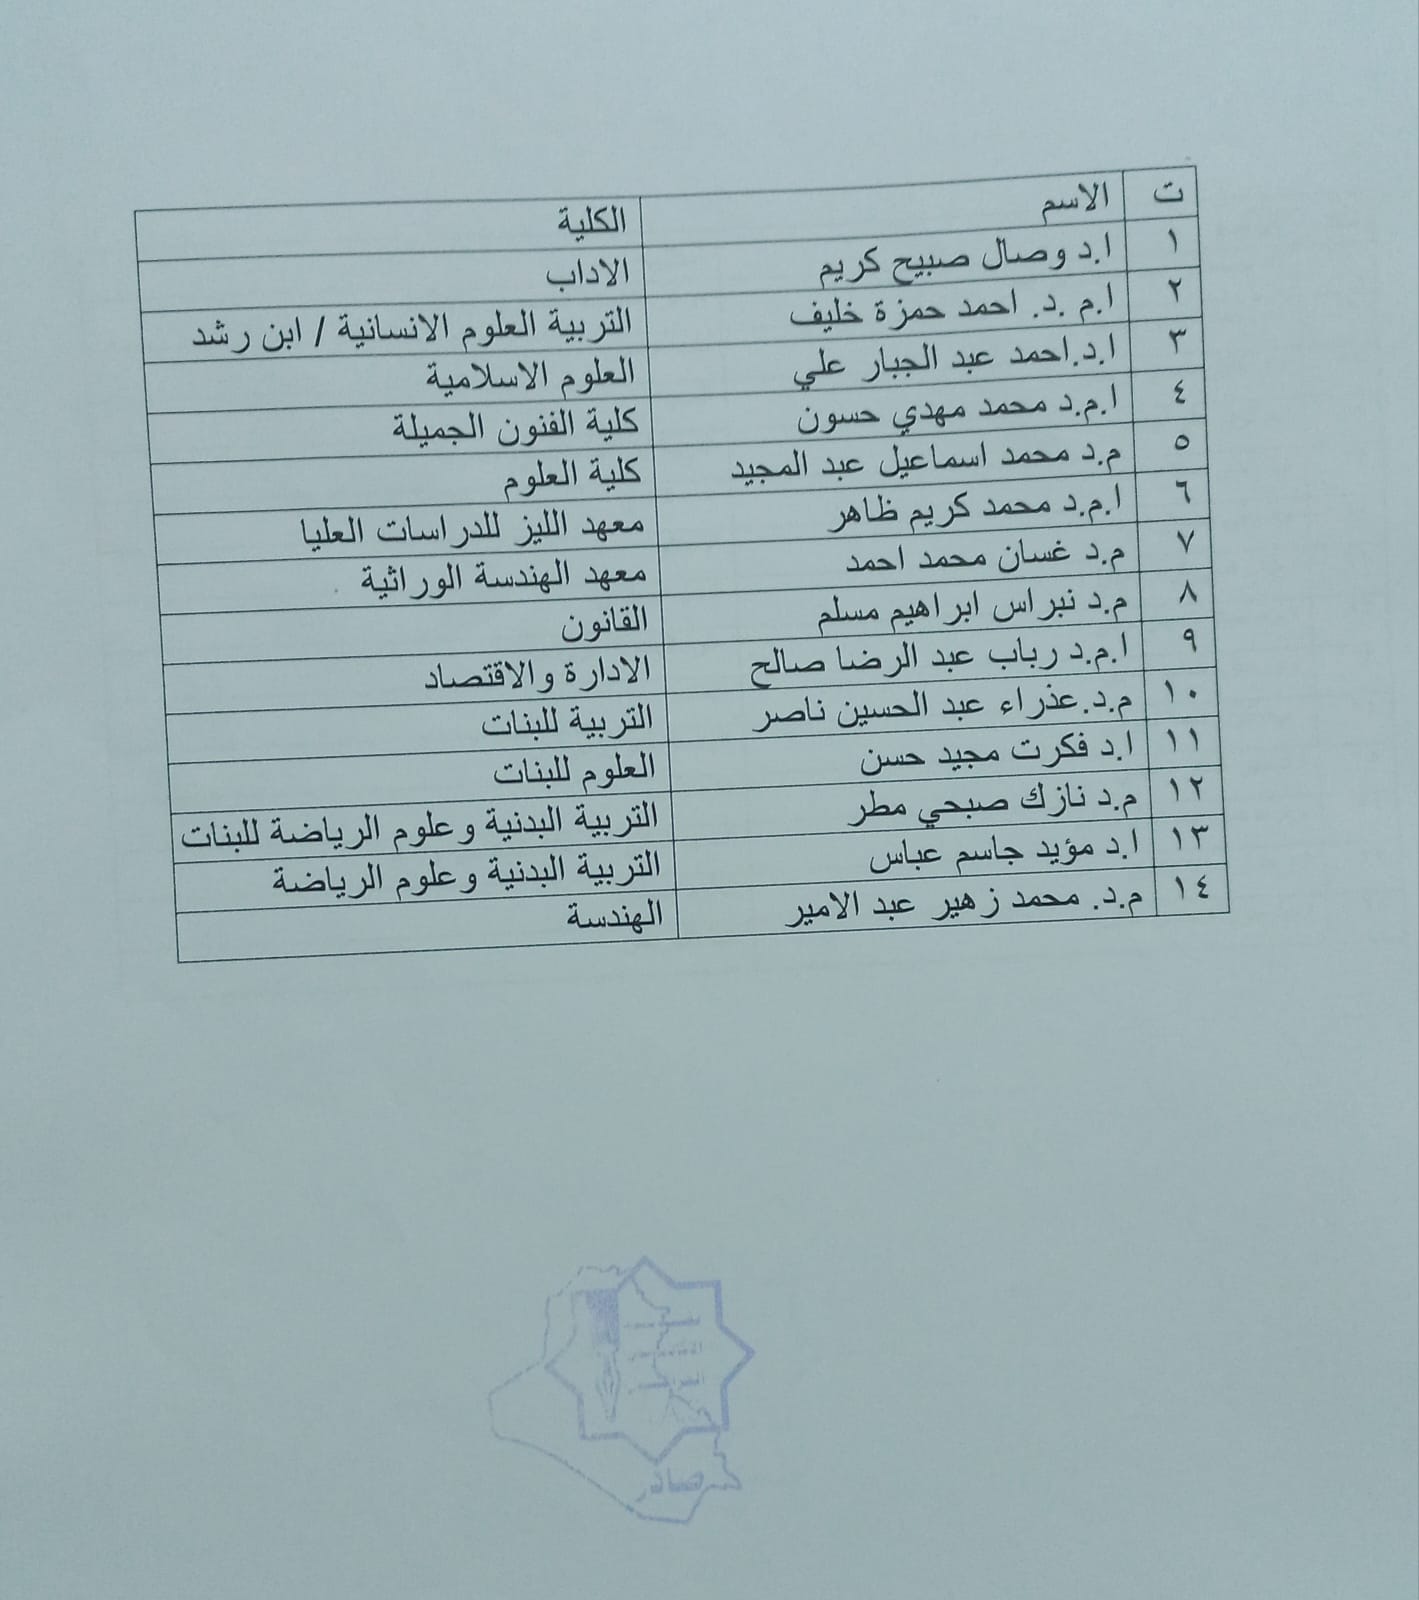 ت الاسم الكلية
١ ا.د وصال صبيح كريم الاداب
٢ ا.م .د. احمد حمزة خليف التربية العلوم الانسانية / ابن رشد
٣ ا.د.احمد عبد الجبار علي العلوم الاسلامية
٤ ا.م.د محمد مهدي حسون كلية الفنون الجميلة
٥ م.د محمد اسماعيل عبد المجيد كلية العلوم
٦ ا.م.د محمد كريم ظاهر معهد الليز للدراسات العليا
٧ م.د غسان محمد احمد معهد الهندسة الوراثية
٨ م.د نبراس ابراهيم مسلم القانون
٩ ا.م.د رباب عبد الرضا صالح الادارة والاقتصاد
١٠ م.د.عذراء عبد الحسين ناصر التربية للبنات
١١ ا.د فكرت مجيد حسن العلوم للبنات
١٢ م.د نازك صبحي مطر التربية البدنية وعلوم الرياضة للبنات
١٣ ا.د مؤيد جاسم عباس التربية البدنية وعلوم الرياضة
١٤ م.د. محمد زهير عبد الامير الهندسة
صادر